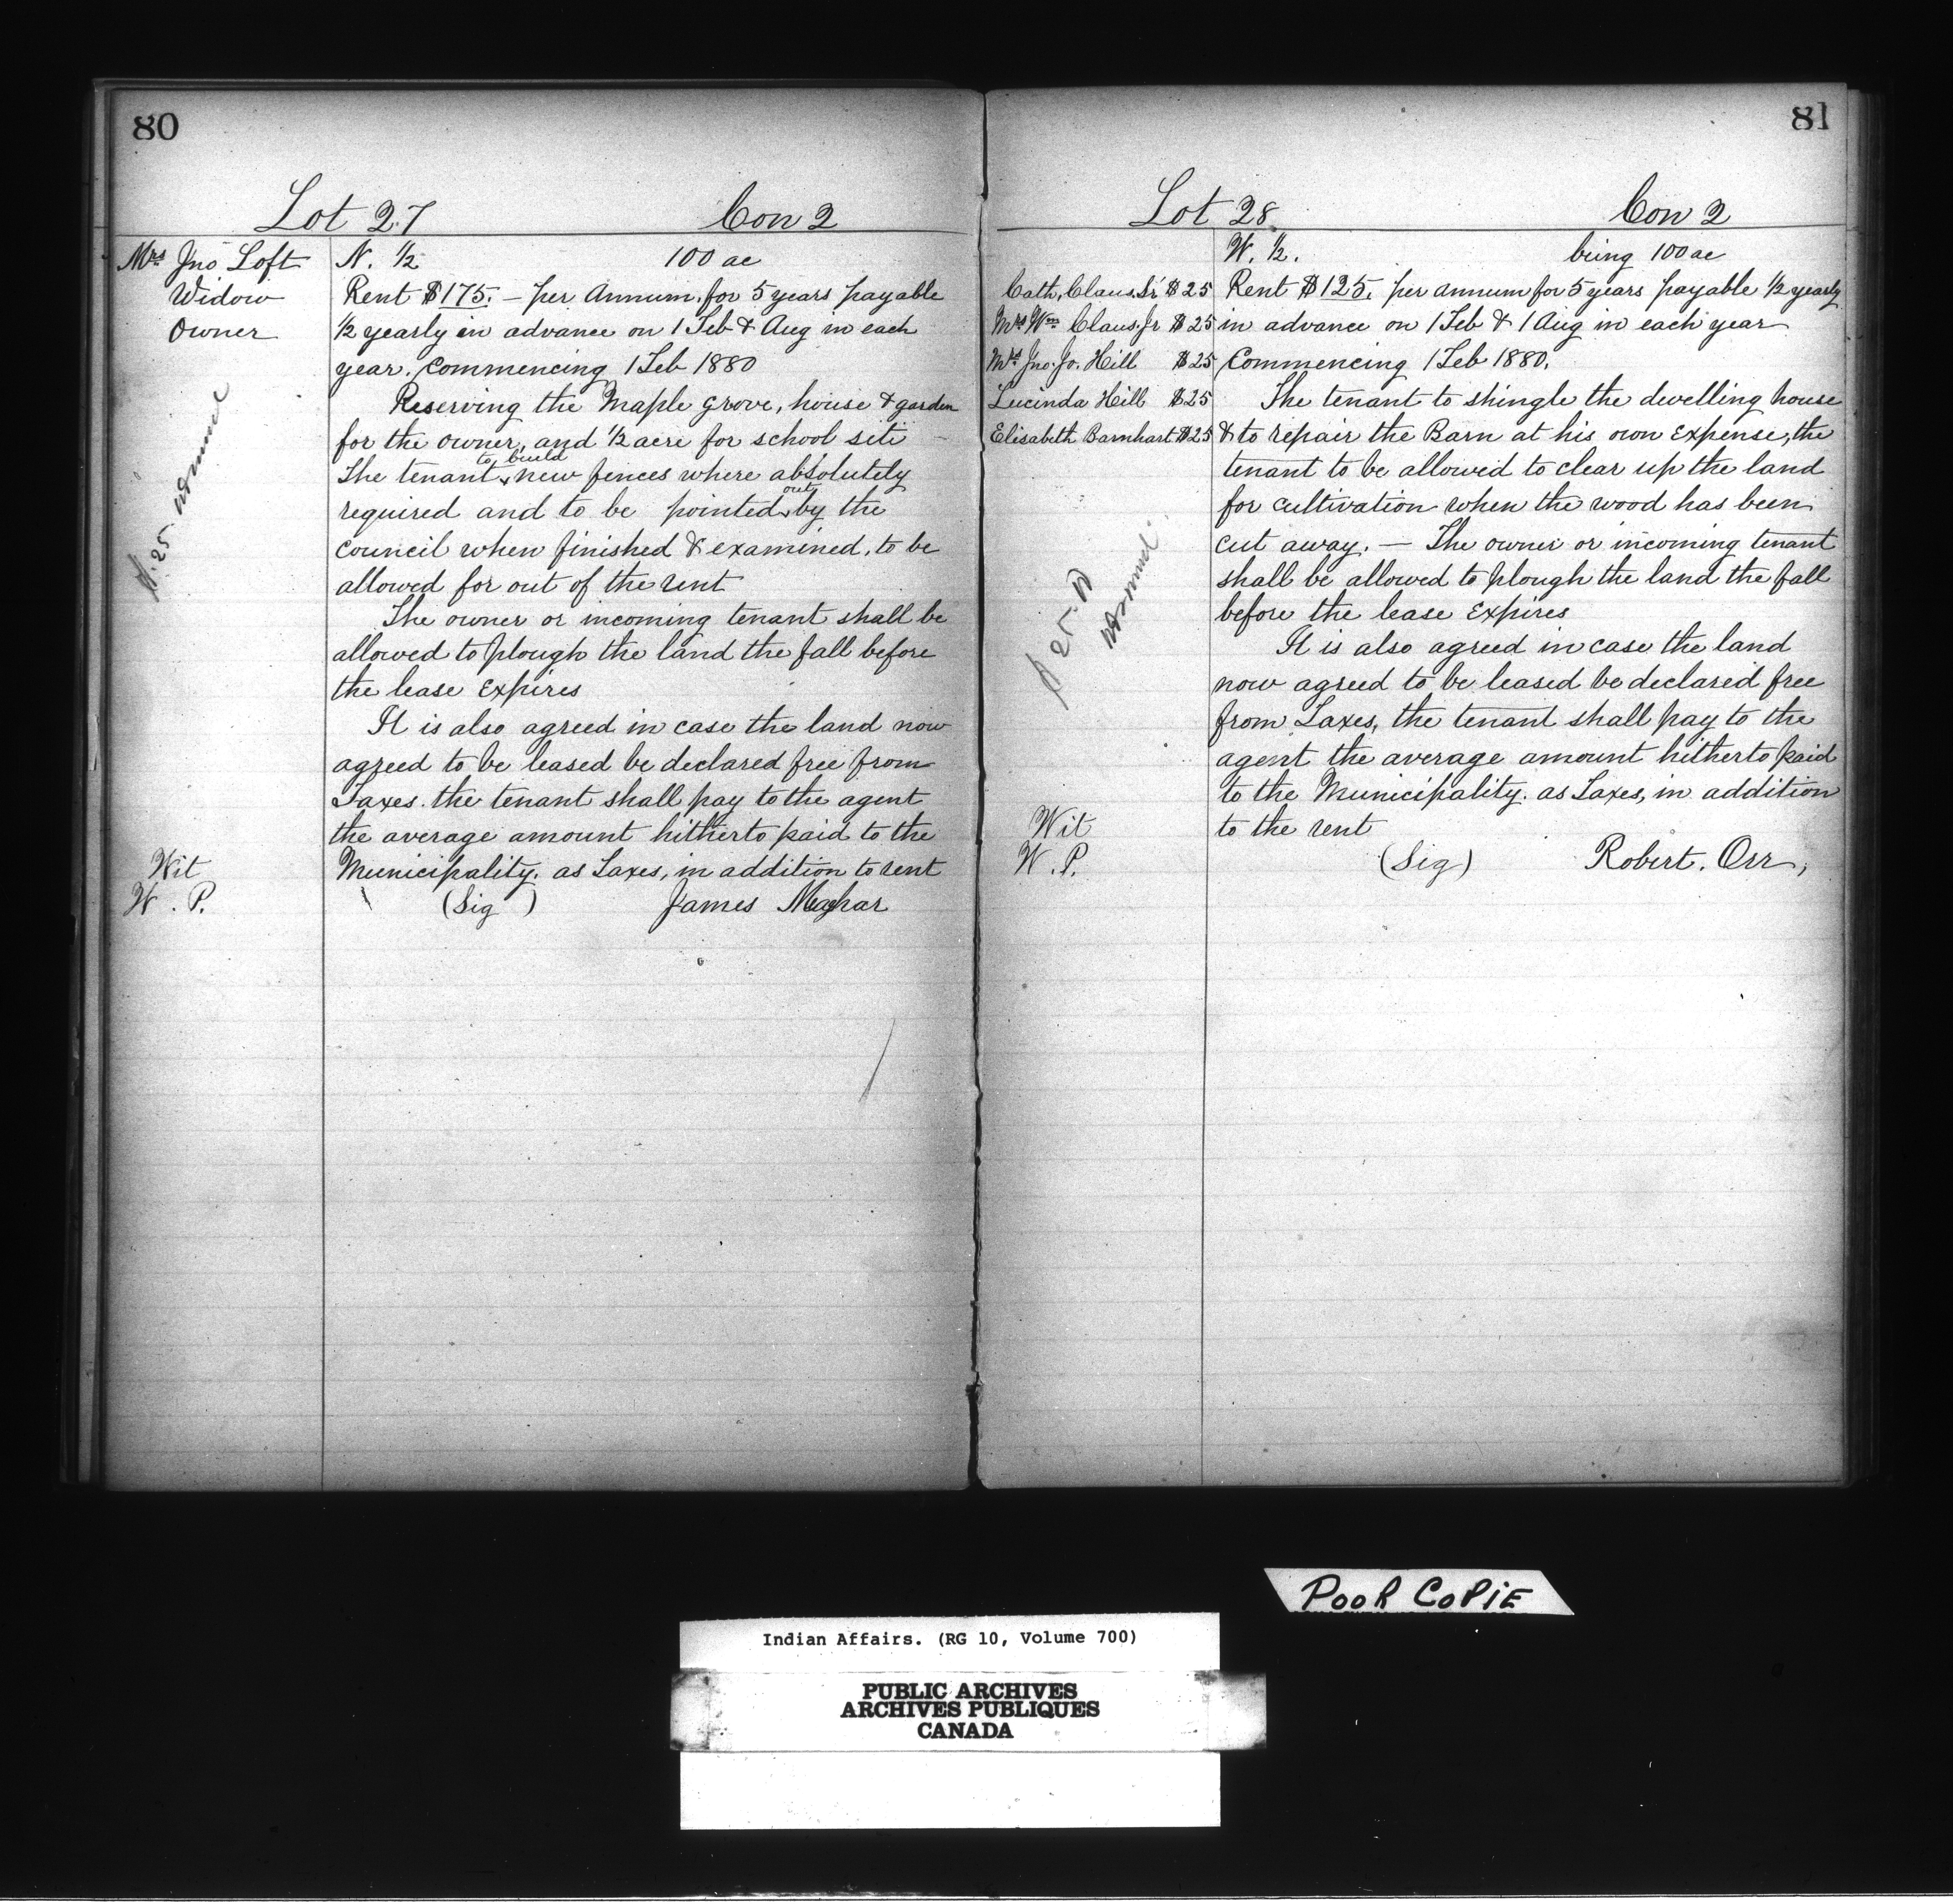 80
Lot 27 Con 2
Mrs Jno Loft
Widow
Owner
N. ½ 100 ac
Rent $175. — per Annum. for 5 years payable
½ yearly in advance on 1 Feb & Aug in each
year. Commencing 1 Feb 1880
Reserving the Maple Grove, house & garden
for the owner, and ½ acre for school site —
The tenant to build new fences where absolutely
required and to be pointed out by the
Council when finished & examined, to be
allowed for out of the rent
The owner or incoming tenant shall be
allowed to plough the land the fall before
the lease Expires
It is also agreed in case the land now
agreed to be leased be declared free from
Taxes. the tenant shall pay to the agent
the average amount hitherto paid to the
Municipality. as Taxes, in addition to rent
Wit
W. P.
(Sig) James
81
Lot 28 Con 2
W. ½. being 100 ac
Cath. Claus. Sr $25
Mrs Wm Claus. Jr $25
Mrs Jno. Jo. Hill $25
Lucinda Hill $25
Elisabeth Barnhart $25
Rent $125. per annum for 5 years payable ½ yearly
in advance on 1 Feb & 1 Aug in each year
Commencing 1 Feb 1880.
The tenant to shingle the dwelling house
& to repair the Barn at his own Expense, the
tenant to be allowed to clear up the land
for cultivation when the wood has been
cut away. — The owner or incoming tenant
shall be allowed to plough the land the fall
before the lease Expires
It is also agreed in case the land
now agreed to be leased be declared free
from Taxes, the tenant shall pay to the
agent the average amount hitherto paid
to the Municipality. as Taxes, in addition
to the rent
Wit
W. P.
(Sig) Robert. Orr,
POOR COPIE
Indian Affairs. (RG 10, Volume 700)
PUBLIC ARCHIVES
ARCHIVES PUBLIQUES
CANADA